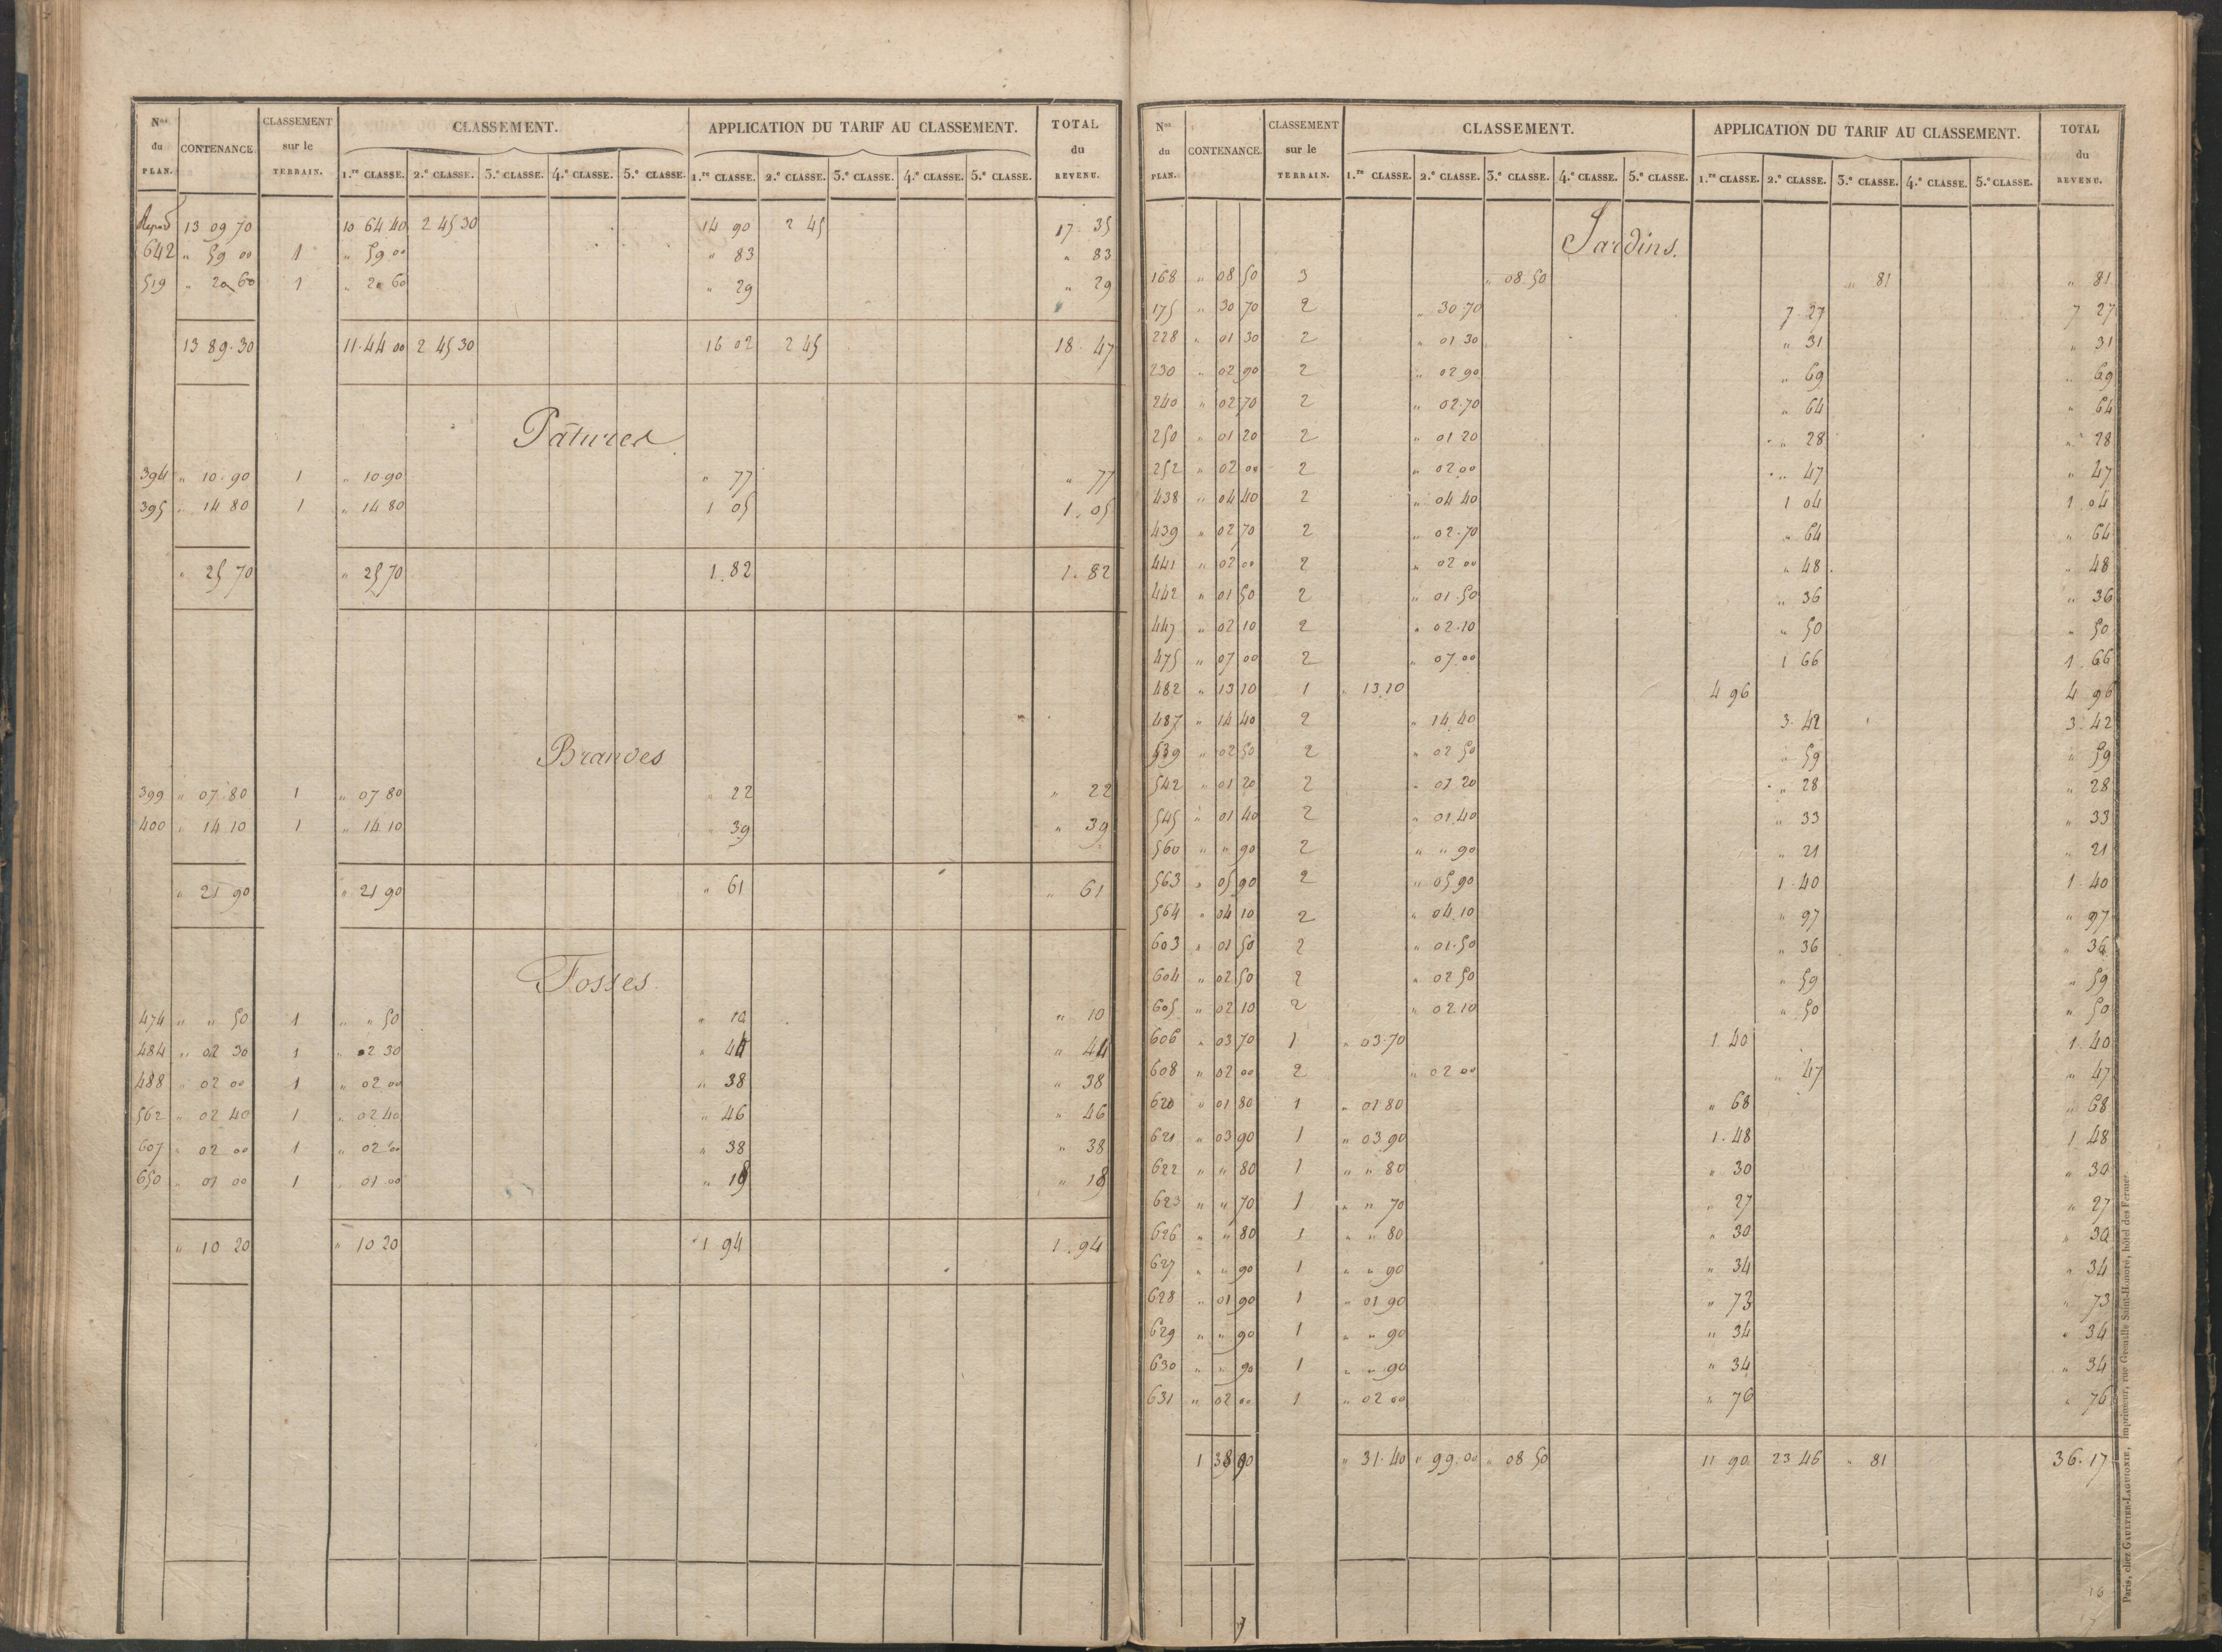 Nos du PLAN. CONTENANCE. CLASSEMENT sur le TERRAIN. CLASSEMENT. APPLICATION DU TARIF AU CLASSEMENT. TOTAL du REVENU.
1.re CLASSE. 2.e CLASSE. 3.e CLASSE. 4.e CLASSE. 5.e CLASSE. 1.re CLASSE. 2.e CLASSE. 3.e CLASSE. 4.e CLASSE. 5.e CLASSE.
13 09 70 10 64 40 2 45 30 14 90 2 45 17 35
642 " 59 00 1 " 59 00 " 83 " 83
519 " 20 60 1 " 20 60 " 29 " 29
13 89 30 11.44 00 2 45 30 16 02 2 45 18 47
Pâtures
394 " 10.90 1 " 10.90 " 77 " 77
395 " 14 80 1 " 14 80 1 05 1.05
" 25 70 " 25 70 1.82 1.82
Brandes
399 " 07.80 1 " 07 80 " 22 " 22
400 " 14 10 1 " 14 10 " 39 " 39
" 21 90 " 21 90 " 61 " 61
Fosses
474 " " 50 1 " " 50 " 10 " 10
484 " 02 30 1 " 02 30 " 44 " 44
488 " 02 00 1 " 02 00 " 38 " 38
562 " 02 40 1 " 02 40 " 46 " 46
607 " 02 00 1 " 02 00 " 38 " 38
650 " 01 00 1 " 01 00 " 18 " 18
" 10 20 " 10 20 1 94 1.94
Nos du PLAN. CONTENANCE. CLASSEMENT sur le TERRAIN. CLASSEMENT. APPLICATION DU TARIF AU CLASSEMENT. TOTAL du REVENU.
1.re CLASSE. 2.e CLASSE. 3.e CLASSE. 4.e CLASSE. 5.e CLASSE. 1.re CLASSE. 2.e CLASSE. 3.e CLASSE. 4.e CLASSE. 5.e CLASSE.
Jardins.
168 " 08 50 3 " 08 50 " 81 " 81
175 " 30 70 2 " 30.70 7.27 7 27
228 " 01 30 2 " 01 30 " 31 " 31
230 " 02 90 2 " 02 90 " 69 " 69
240 " 02 70 2 " 02.70 " 64 " 64
250 " 01 20 2 " 01 20 " 28 " 28
252 " 02 00 2 " 02 00 " 47 " 47
438 " 04 40 2 " 04 40 1 04 1 04
439 " 02 70 2 " 02.70 " 64 " 64
441 " 02 00 2 " 02 00 " 48 " 48
442 " 01 50 2 " 01.50 " 36 " 36
447 " 02 10 2 " 02.10 " 50 " 50
475 " 07 00 2 " 07.00 1 66 1.66
482 " 13 10 1 " 13.10 4 96 4 96
487 " 14 40 2 " 14 40 3.42 3.42
539 " 02 50 2 " 02 50 " 59 " 59
542 " 01 20 2 " 01 20 " 28 " 28
545 " 01 40 2 " 01.40 " 33 " 33
560 " " 90 2 " " 90 " 21 " 21
563 " 05 90 2 " 05 90 1.40 1.40
564 " 04 10 2 " 04.10 " 97 " 97
603 " 01 50 2 " 01.50 " 36 " 36
604 " 02 50 2 " 02 50 " 59 " 59
605 " 02 10 2 " 02.10 " 50 " 50
606 " 03 70 1 " 03.70 1.40 1.40
608 " 02 00 2 " 02 00 " 47 " 47
620 " 01 80 1 " 01 80 " 68 " 68
621 " 03 90 1 " 03 90 1.48 1 48
622 " " 80 1 " " 80 " 30 " 30
623 " " 70 1 " " 70 " 27 " 27
626 " " 80 1 " " 80 " 30 " 30
627 " " 90 1 " " 90 " 34 " 34
628 " 01 90 1 " 01 90 " 73 " 73
629 " " 90 1 " " 90 " 34 " 34
630 " " 90 1 " " 90 " 34 " 34
631 " 02 00 1 " 02 00 " 76 " 76
1 38 90 " 31.40 " 99.00 " 08 50 11 90 23 46 " 81 36.17
Paris, chez GAULTIER-LAGUIONIE, imprimeur, rue Grenelle Saint-Honoré, hôtel des Fermes.